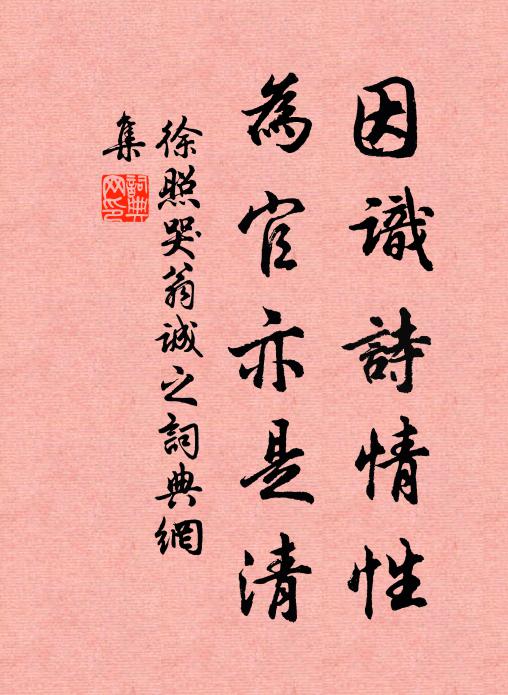 因識詩情性
為官亦是清
徐照哭翁誠之詞典網
集
詞典
网印